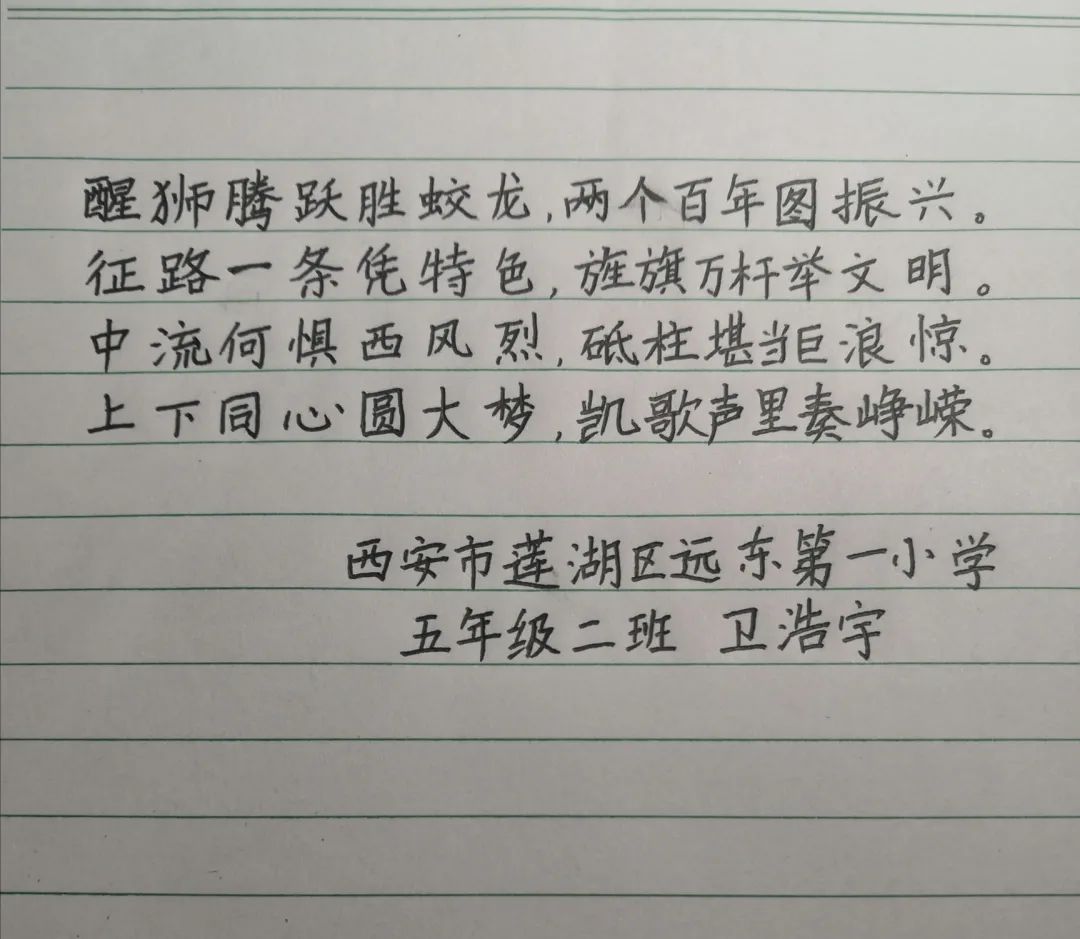 醒狮腾跃胜蛟龙,两个百年图振兴。
征路一条凭特色,旌旗万杆举文明。
中流何惧西风烈,砥柱堪当巨浪惊。
上下同心圆大梦,凯歌声里奏峥嵘。
西安市莲湖区远东第一小学
五年级二班 卫浩宇